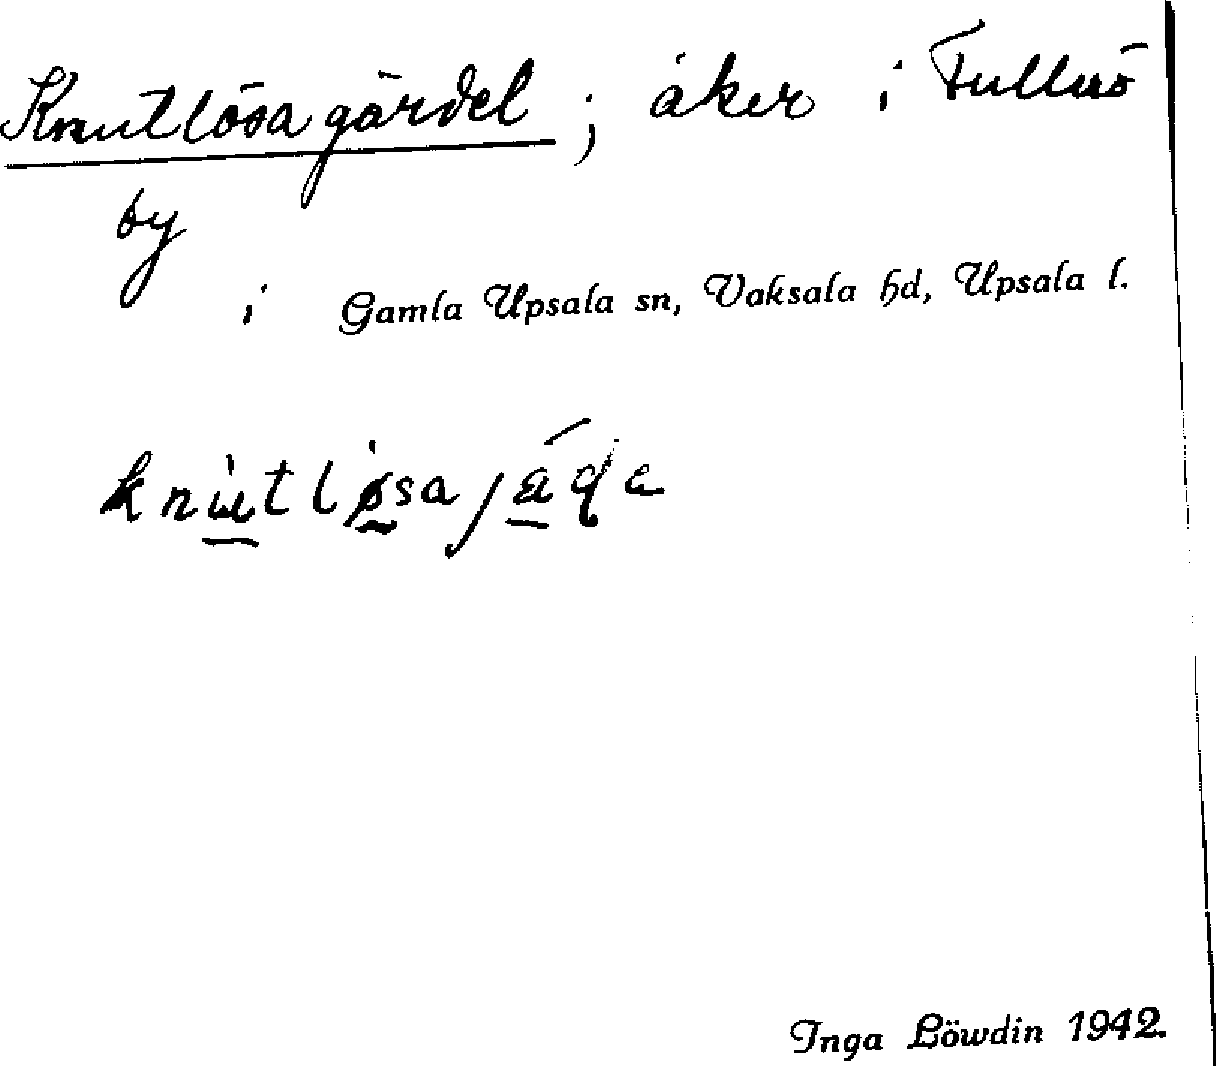 Knutlösa gärdel ; åker i Fullerö
by
i Gamla Upsala sn, Vaksala hd, Upsala l.
knùtlø̀sa
Inga Löwdin 1942.